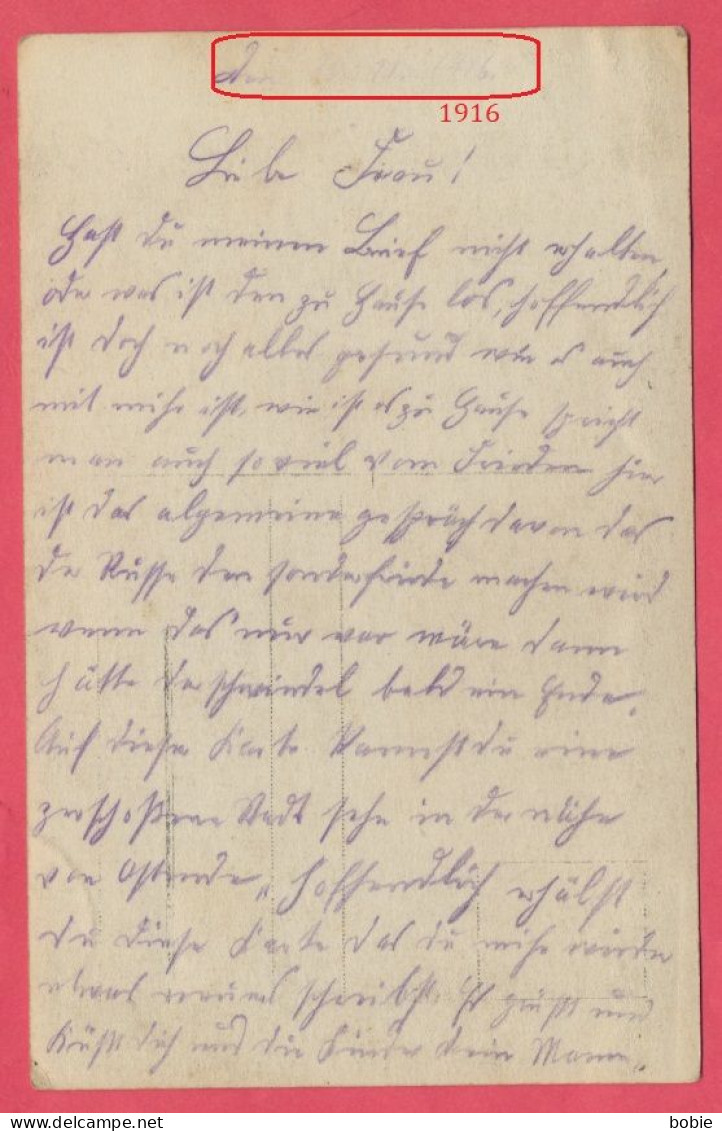 Den 1916.
1916
Liebe Frau!
Hast du meinen Brief nicht erhalten
oder was ist den zu Hause los, hoffendlich
ist doch noch alles gesund wie es auch
mit mihr ist, wie ist es zu Hause spricht
man auch so viel vom Frieden hier
ist das algemeine gespräch davon das
de Russe den sonderfriede machen wird
wenn das nur war wäre dann
hätte der schwindel bald ein Ende.
Auf dieser Karte kannst du eine
zerschoßene Stadt sehn in der nähe
von Ostende„ hoffendlich erhälst
du diese Karte das du mihr wieder
etwas neues schreibst. Es grüßt und
Küßt dich und die Kinder dein Mann„
bobie